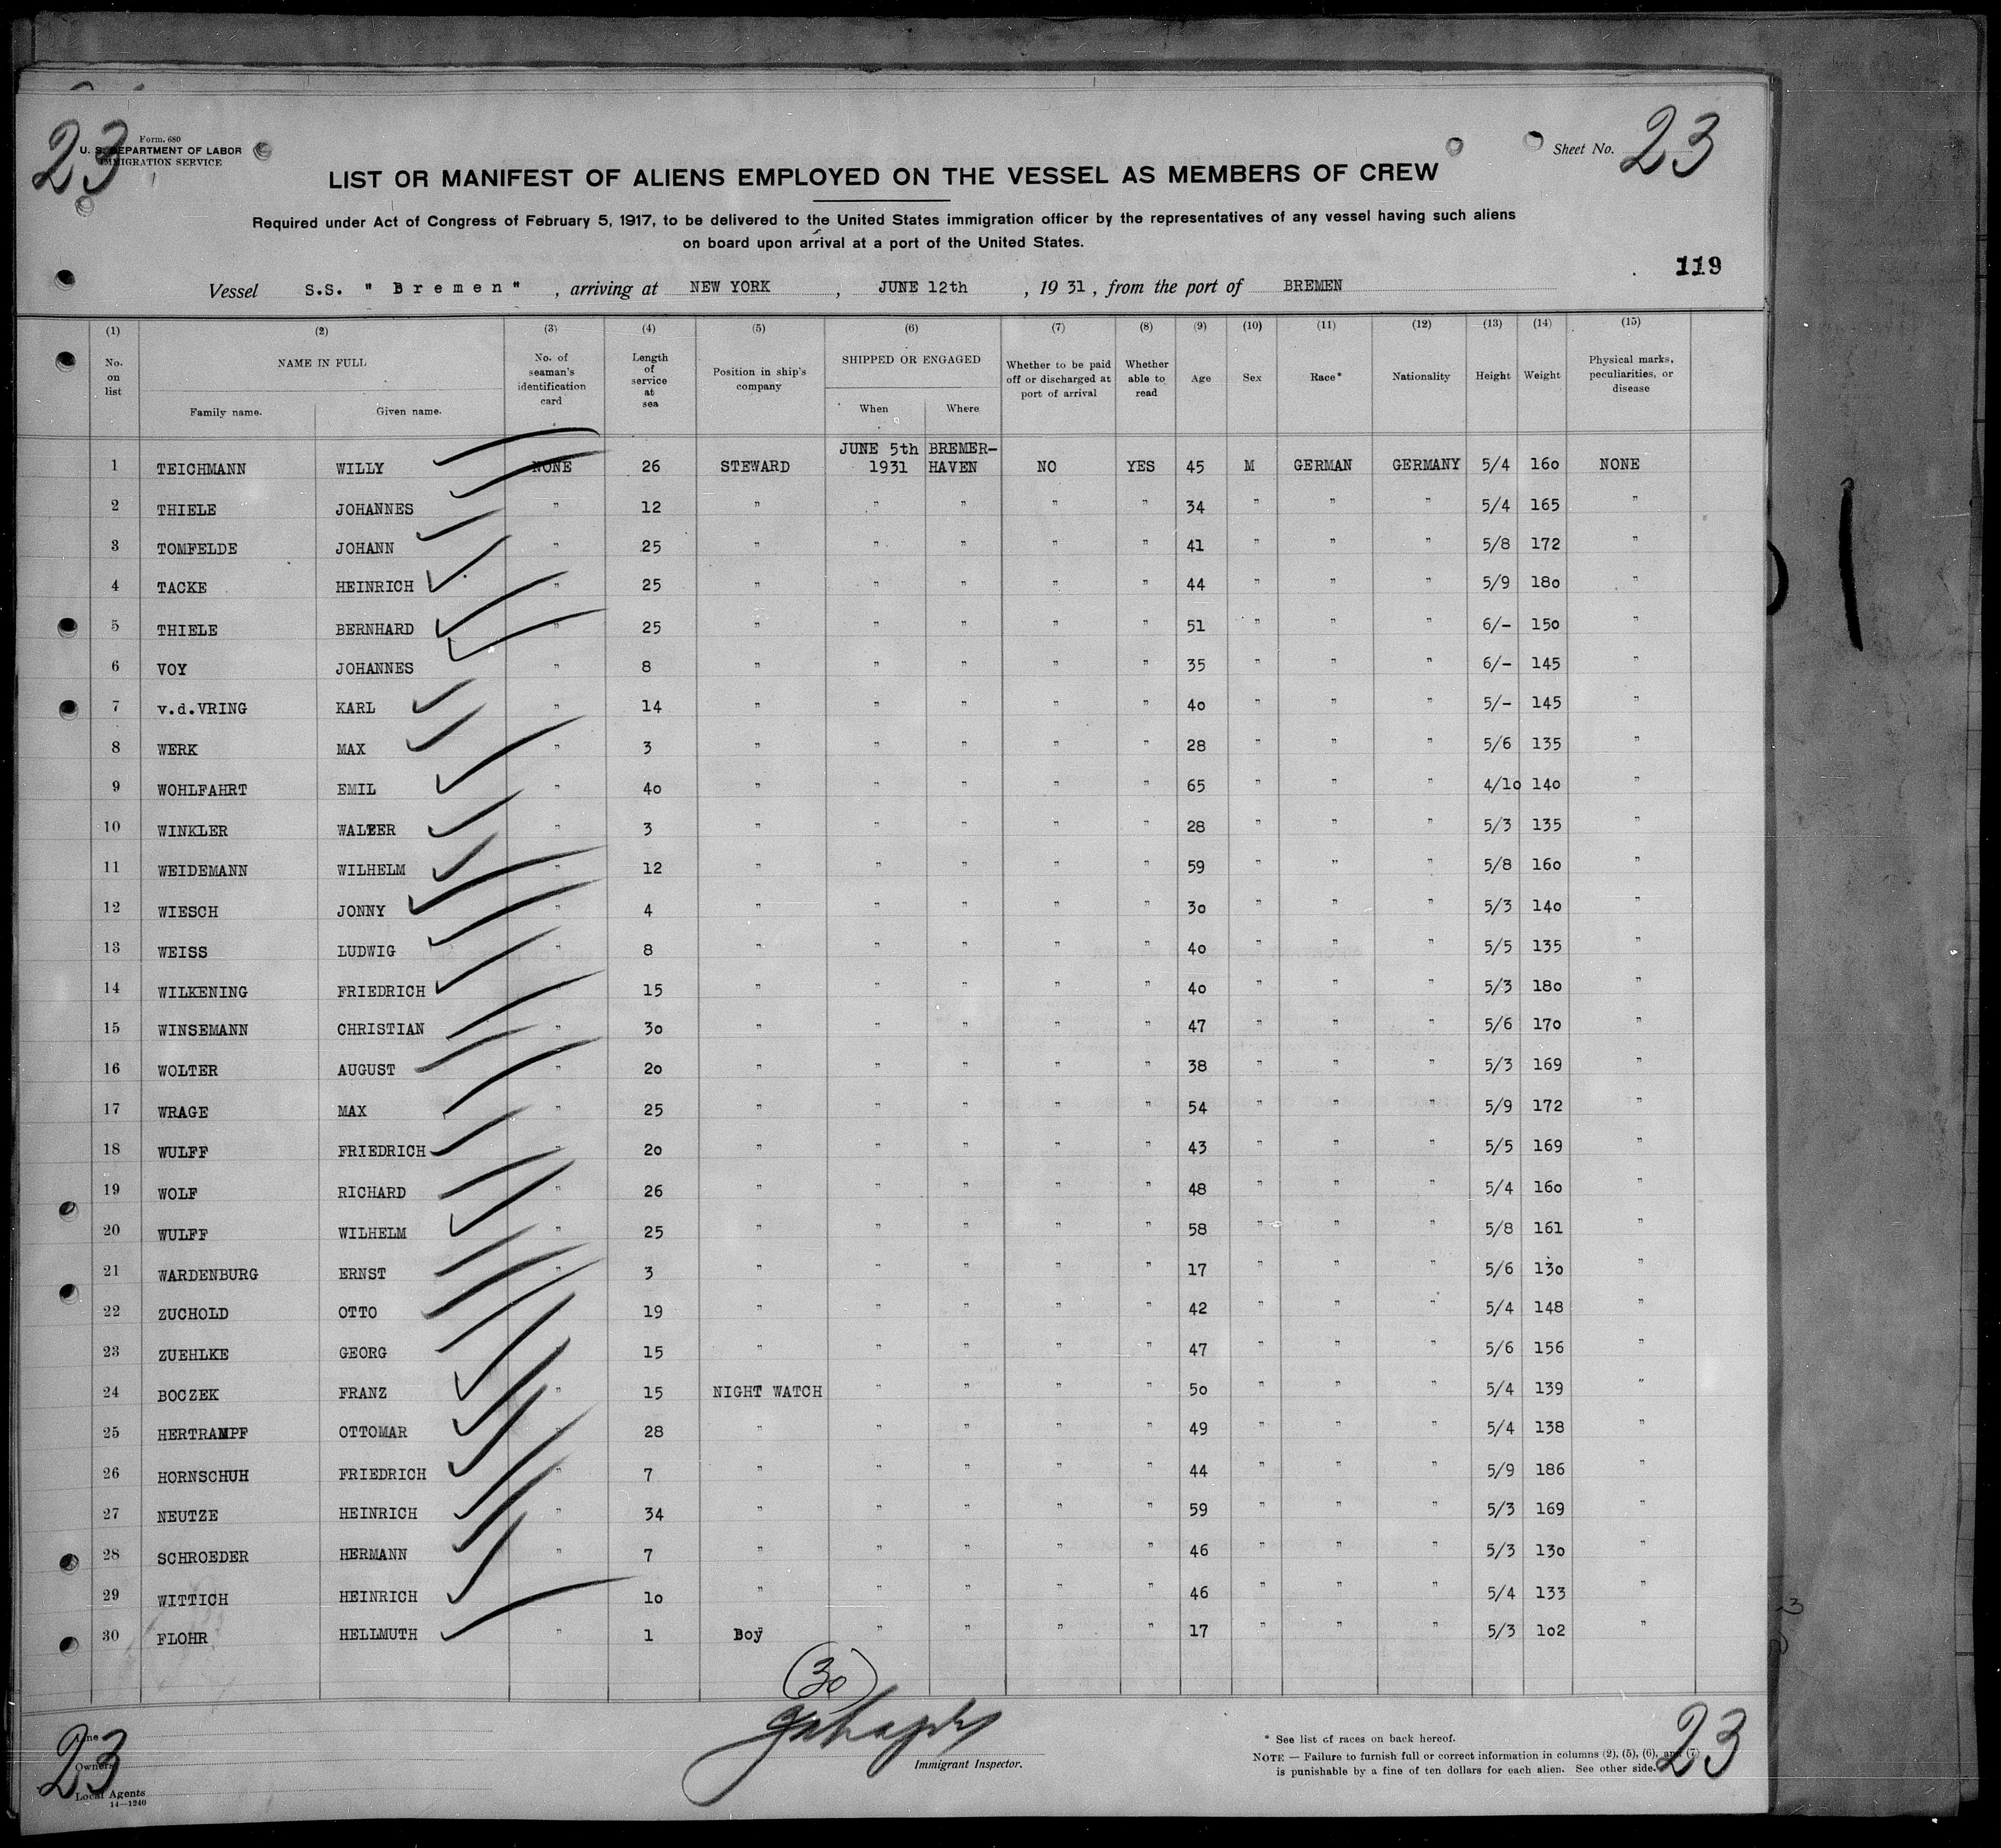 23
Form. 680
U. S. DEPARTMENT OF LABOR
IMMIGRATION SERVICE
Sheet No. 23
LIST OR MANIFEST OF ALIENS EMPLOYED ON THE VESSEL AS MEMBERS OF CREW
Required under Act of Congress of February 5, 1917, to be delivered to the United States immigration officer by the representatives of any vessel having such aliens
on board upon arrival at a port of the United States.
119
Vessel S.S. "Bremen", arriving at NEW YORK, JUNE 12th, 1931, from the port of BREMEN
(1) (2) (3) (4) (5) (6) (7) (8) (9) (10) (11) (12) (13) (14) (15)
No. on list NAME IN FULL Family name. Given name. No. of seaman's identification card Length of service at sea Position in ship's company SHIPPED OR ENGAGED When Where Whether to be paid off or discharged at port of arrival Whether able to read Age Sex Race* Nationality Height Weight Physical marks, peculiarities, or disease
1 TEICHMANN WILLY NONE 26 STEWARD JUNE 5th 1931 BREMER-HAVEN NO YES 45 M GERMAN GERMANY 5/4 160 NONE
2 THIELE JOHANNES " 12 " " " " " 34 " " " 5/4 165 "
3 TOMFELDE JOHANN " 25 " " " " " 41 " " " 5/8 172 "
4 TACKE HEINRICH " 25 " " " " " 44 " " " 5/9 180 "
5 THIELE BERNHARD " 25 " " " " " 51 " " " 6/- 150 "
6 VOY JOHANNES " 8 " " " " " 35 " " " 6/- 145 "
7 v.d.VRING KARL " 14 " " " " " 40 " " " 5/- 145 "
8 WERK MAX " 3 " " " " " 28 " " " 5/6 135 "
9 WOHLFAHRT EMIL " 40 " " " " " 65 " " " 4/10 140 "
10 WINKLER WALTER " 3 " " " " " 28 " " " 5/3 135 "
11 WEIDEMANN WILHELM " 12 " " " " " 59 " " " 5/8 160 "
12 WIESCH JONNY " 4 " " " " " 30 " " " 5/3 140 "
13 WEISS LUDWIG " 8 " " " " " 40 " " " 5/5 135 "
14 WILKENING FRIEDRICH " 15 " " " " " 40 " " " 5/3 180 "
15 WINSEMANN CHRISTIAN " 30 " " " " " 47 " " " 5/6 170 "
16 WOLTER AUGUST " 20 " " " " " 38 " " " 5/3 169 "
17 WRAGE MAX " 25 " " " " " 54 " " " 5/9 172 "
18 WULFF FRIEDRICH " 20 " " " " " 43 " " " 5/5 169 "
19 WOLF RICHARD " 26 " " " " " 48 " " " 5/4 160 "
20 WULFF WILHELM " 25 " " " " " 58 " " " 5/8 161 "
21 WARDENBURG ERNST " 3 " " " " " 17 " " " 5/6 130 "
22 ZUCHOLD OTTO " 19 " " " " " 42 " " " 5/4 148 "
23 ZUEHLKE GEORG " 15 " " " " " 47 " " " 5/6 156 "
24 BOCZEK FRANZ " 15 NIGHT WATCH " " " " 50 " " " 5/4 139 "
25 HERTRAMPF OTTOMAR " 28 " " " " " 49 " " " 5/4 138 "
26 HORNSCHUH FRIEDRICH " 7 " " " " " 44 " " " 5/9 186 "
27 NEUTZE HEINRICH " 34 " " " " " 59 " " " 5/3 169 "
28 SCHROEDER HERMANN " 7 " " " " " 46 " " " 5/3 130 "
29 WITTICH HEINRICH " 10 " " " " " 46 " " " 5/4 133 "
30 FLOHR HELLMUTH " 1 Boy " " " " 17 " " " 5/3 102 "
(30)
Immigrant Inspector.
23
Line
Owners
Local Agents
14—1240
* See list of races on back hereof.
NOTE — Failure to furnish full or correct information in columns (2), (5), (6), and (7)
is punishable by a fine of ten dollars for each alien. See other side.
23